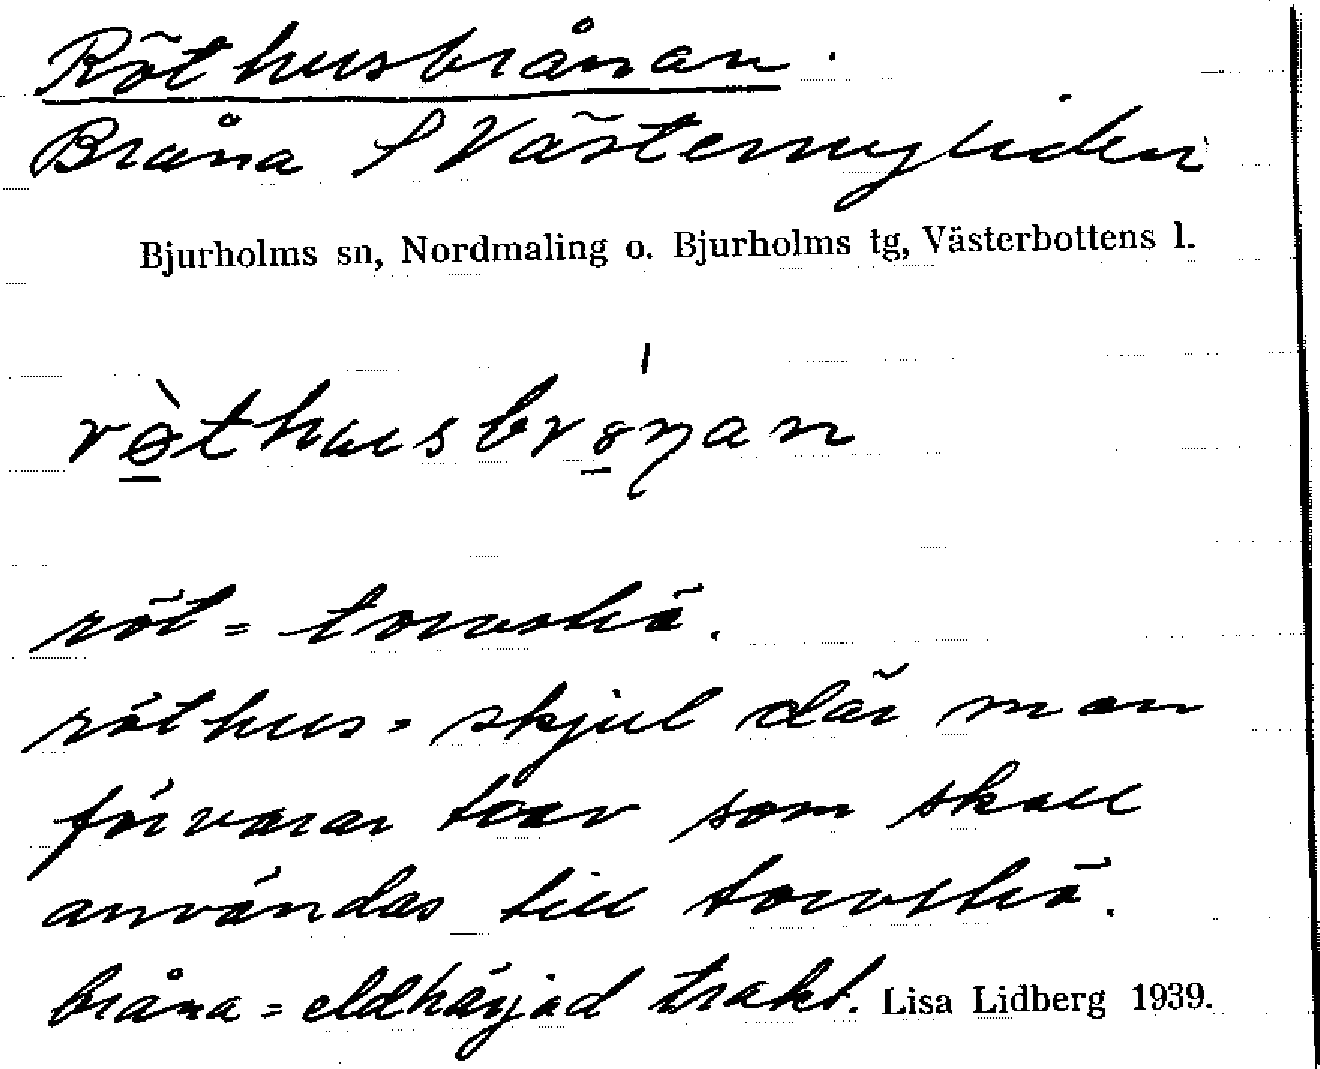 Röthusbrånan.
Bråna S Västernyliden
Bjurholms sn, Nordmaling o. Bjurholms tg, Västerbottens l.
röt = torvströ.
röthus = skjul där man
förvarar torv som skall
användas till torvströ.
bråna = eldhärjad trakt. Lisa Lidberg 1939.